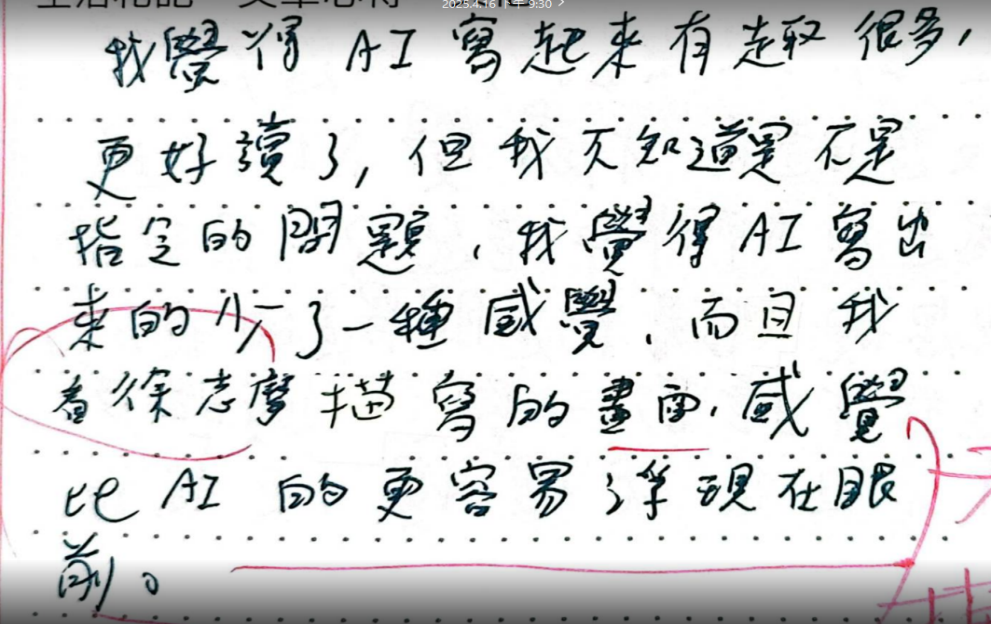 2025.4.16 下午9:30
我覺得 AI 寫起來有趣很多,
更好讀了,但我不知道是不是
指定的問題,我覺得AI寫出
來的少了一種感覺,而且我
看徐志摩描寫的畫面,感覺
比 AI 的更容易浮現在眼
前。